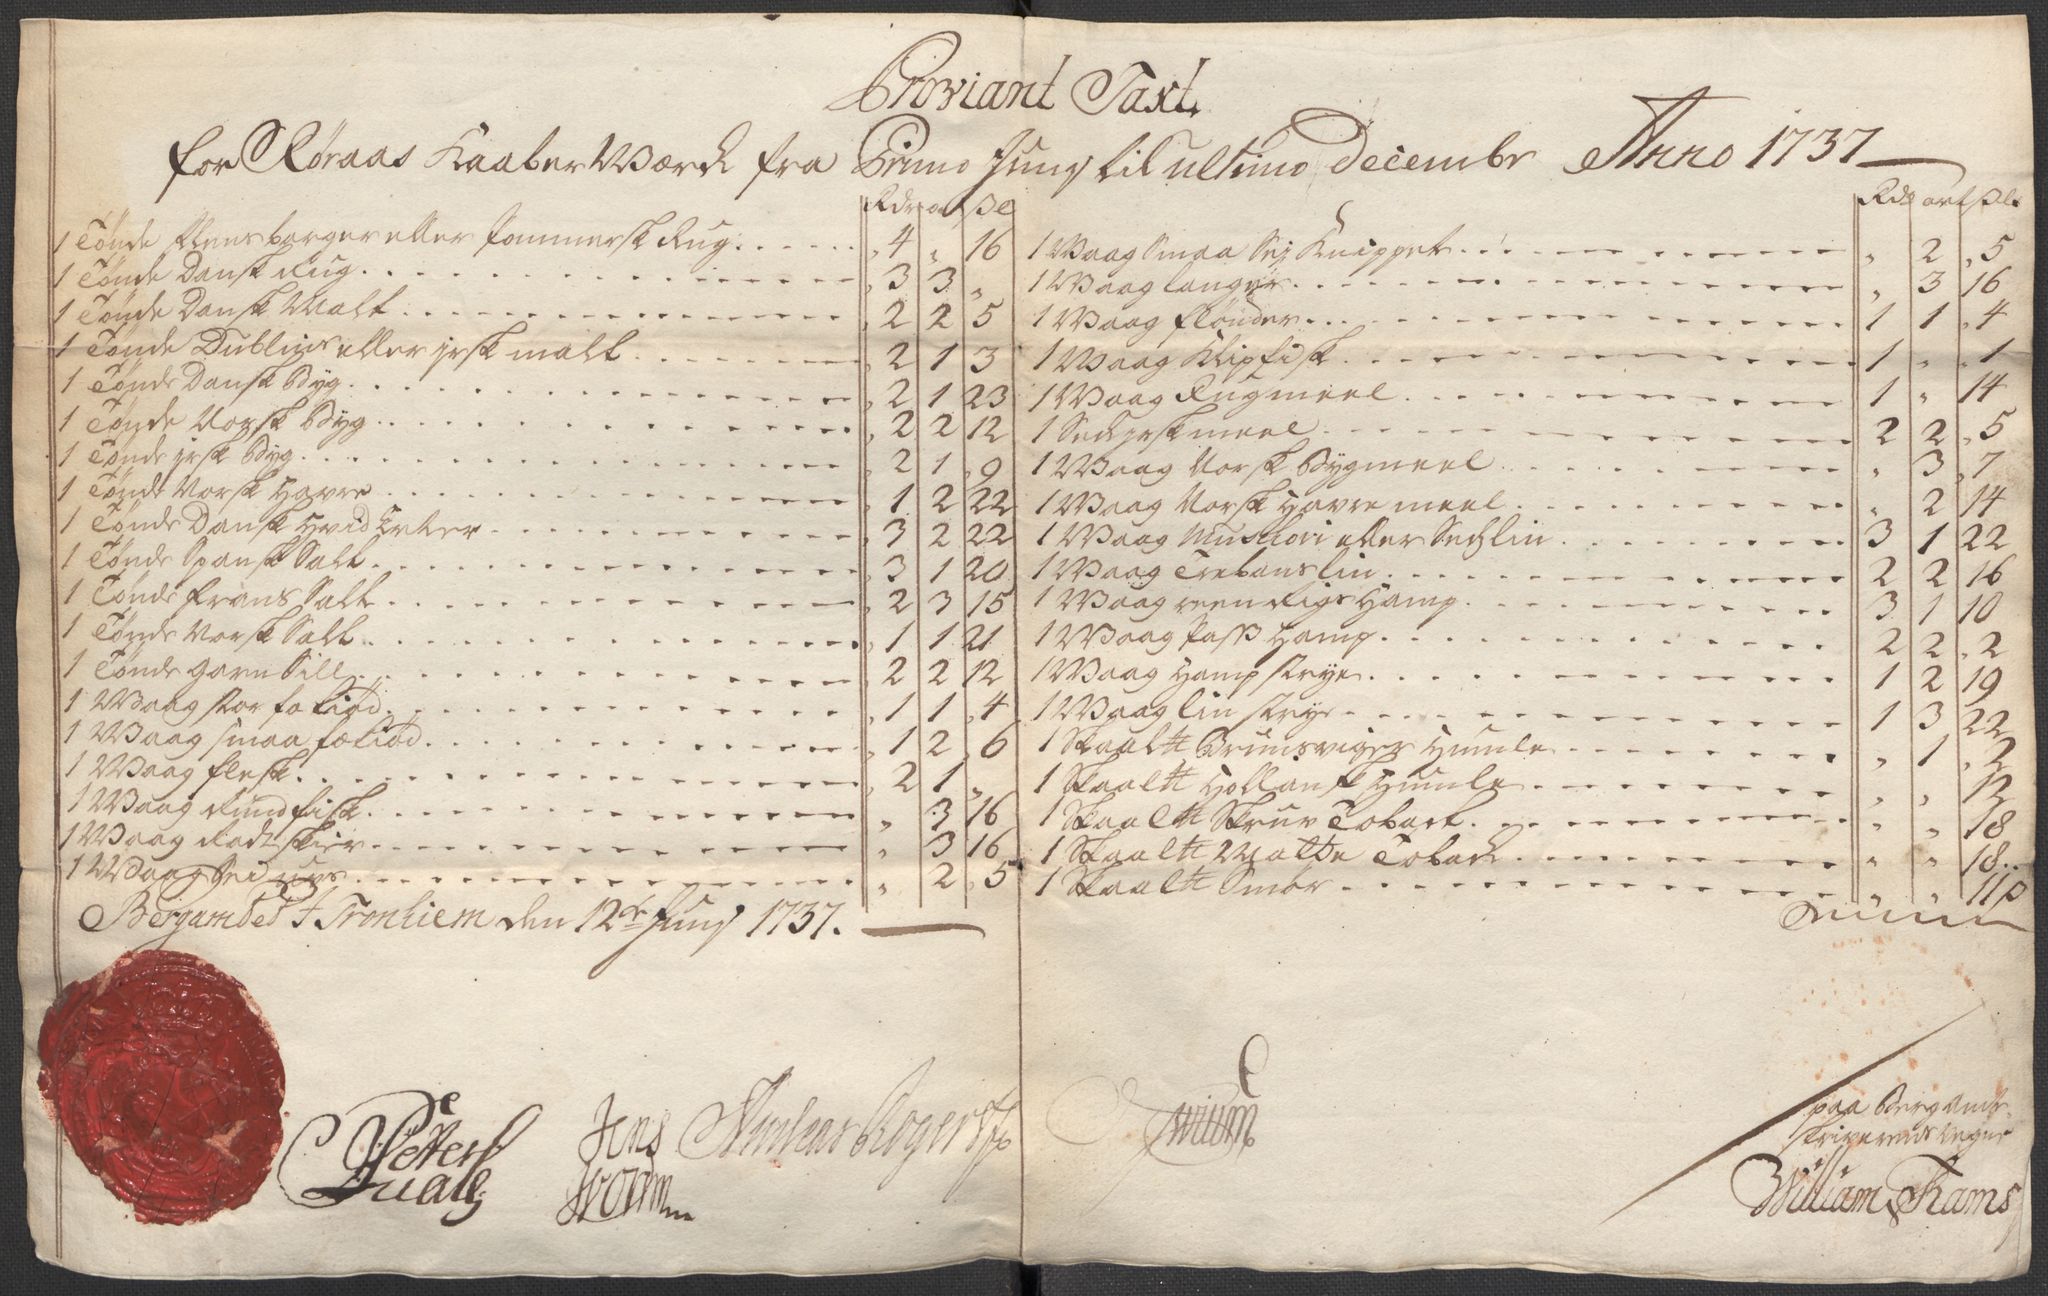 Proviant Taxt
for Røraas Kaaber Værck fra Primo Junj til ultimo Decembr Anno 1737
Rdr o ßl
1 Tønde Flensborger eller Pommersk Rug 4 „ 16
1 Tønde Dansk Rug 3 3 „
1 Tønde Dansk Malt 2 2 5
1 Tønde Dublins eller jrsk malt 2 1 3
1 Tønde Dansk Byg 2 1 23
1 Tønde Norsk Byg 2 2 12
1 Tønde jrsk Byg 2 1 9
1 Tønde Norsk Havre 1 2 22
1 Tønde Dansk Hvid Erter 3 2 22
1 Tønde Spansk Salt 3 1 20
1 Tønde Frans Salt 2 3 15
1 Tønde Norsk Salt 1 1 21
1 Tønde garn Sill 2 2 12
1 Waag stor fækiød 1 1 4
1 Waag smaa fækiød 1 2 6
1 Waag flesk 2 1 „
1 Waag Rundfisk „ 3 16
1 Waag Rodtskier „ 3 16
1 Waag Sei ugs „ 2 5
Bergambted J Tronhiem den 12te Junj 1737.
Rdr ort ßl
1 Waag Smaa Sej Knippet „ 2 5
1 Waag langer „ 3 16
1 Waag flønder 1 1 4
1 Waag Klipfisk 1 „ 1
1 Waag Rugmeel 1 „ 14
1 Sech jrsk meel 2 2 5
1 Waag Norsk Bygmeel „ 3 7
1 Waag Norsk Havre meel „ 2 14
1 Waag Muskovi eller Sechlin 3 1 22
1 Waag Trebans lin 2 2 16
1 Waag reen Rigs Hamp 3 1 10
1 Waag Pass Hamp 2 2 2
1 Waag Hamp strye 1 2 19
1 Waag lin strye 1 3 22
1 Skaal℔ Brunsviger Humle „ 1 2
1 Skaal℔ Hollansk Humle „ „ 12
1 Skaal℔ Skruv Toback „ „ 18
1 Skaal℔ Matte Toback „ „ 18
1 Skaal℔ Smør „ „ 11
Petter
Jens
Andreas Rogert
paa Berg Amts-
skriverens vegne
William